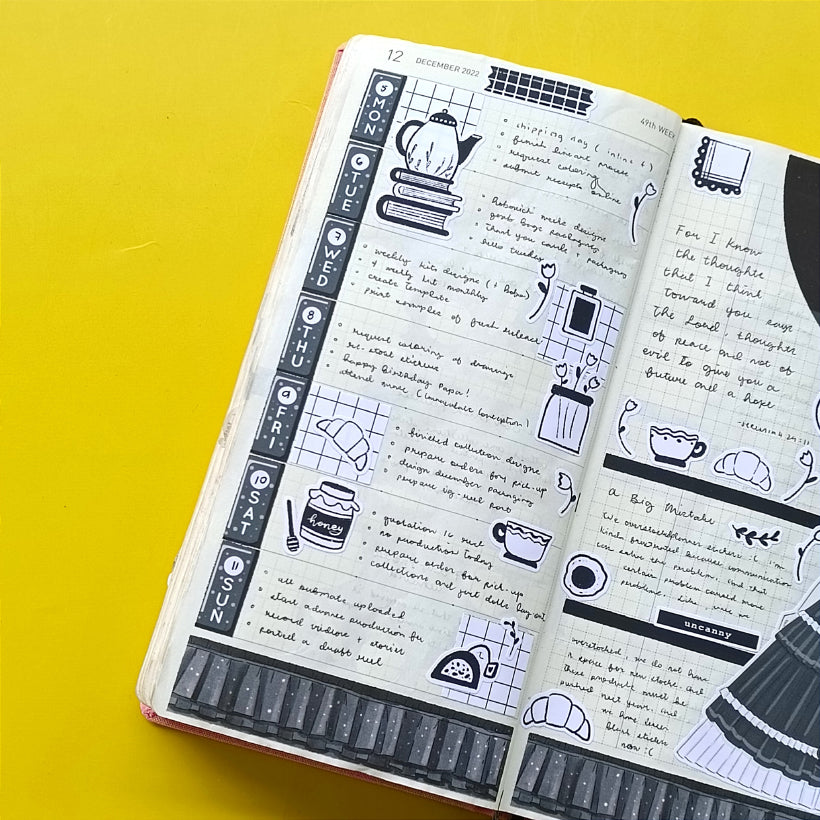 12 DECEMBER 2022
49th WEEK
5 MON
shipping day ( inline 6 )
finish lineart mouse
request coloring
submit receipts online
6 TUE
weeks designs
bags packaging
thank you cards + packaging
hello turkey
7 WED
weekly kit designs (+ Robo)
+ weekly kit monthly
create template
print examples of fresh release
8 THU
request coloring of drawings
re-stock stickers
happy birthday Papa!
attend mass (Immaculate Conception)
9 FRI
finished collection designs
prepare orders for pick-up
design december packaging
prepare ig-reel post
10 SAT
quotation is sent
no production today
prepare order for pick-up
collections and girl dolls
honey
11 SUN
all automate uploaded
start advance production for
record videos + stories
posted a draft reel
For I know
the thoughts
that I think
toward you says
the Lord, thoughts
of peace and not of
evil to give you a
future and a hope
-Jeremiah 29:11
a Big Mistake
We overstocked planner stickers :( I'm
kinda frustrated because communication
can solve the problem, and that
certain problem caused more
problems. Like, were we
uncanny
overstocked, we do not have
a space for new stocks, and
these products must be
pushed next year. and
we have fewer
blank stickers
now :(